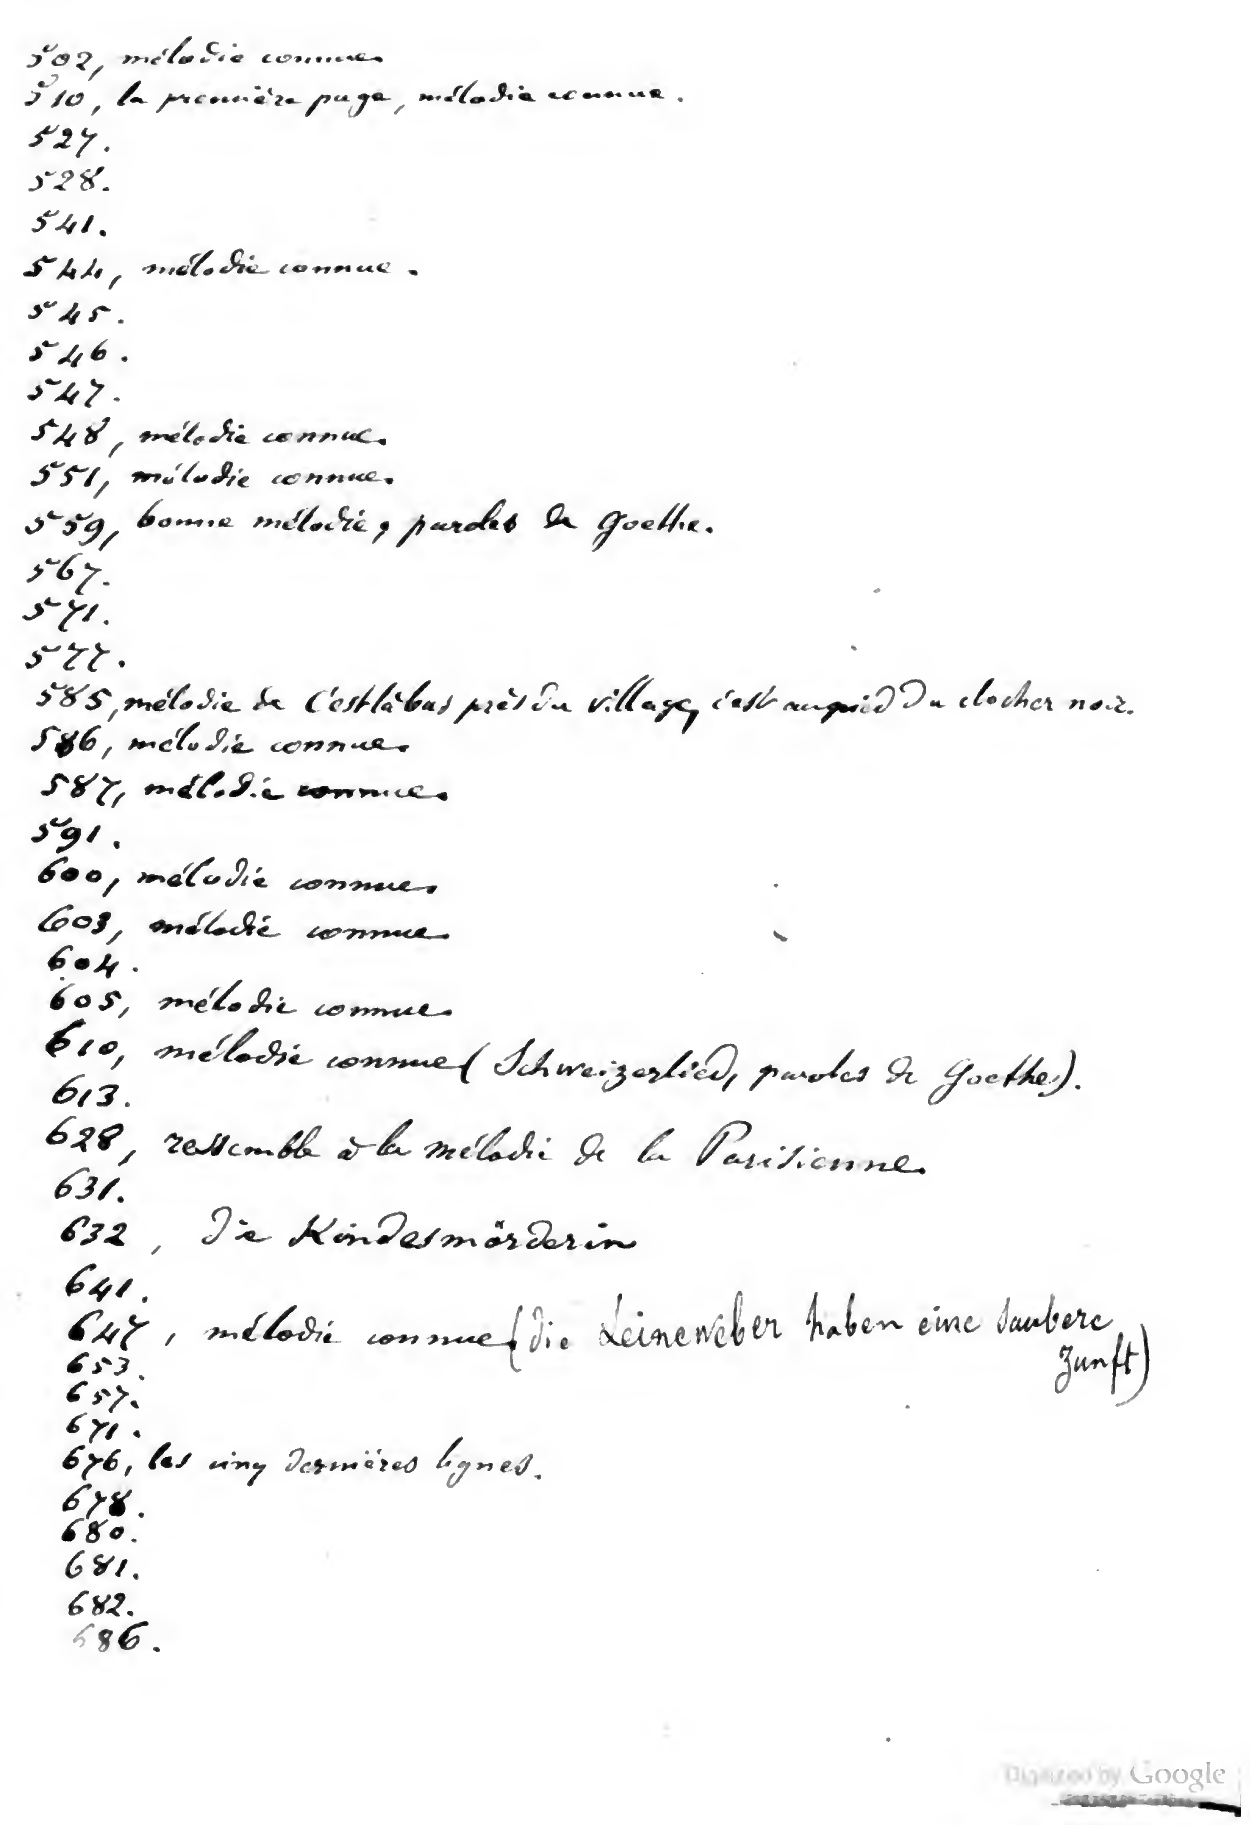 502, mélodie connue.
510, la première page, mélodie connue.
527.
528.
541.
544, mélodie connue.
545.
546.
547.
548, mélodie connue.
551, mélodie connue.
559, bonne mélodie, paroles de Goethe.
567.
571.
577.
585, mélodie de C'est là bas près du village, c'est au pied du clocher noir.
586, mélodie connue.
587, mélodie connue.
591.
600, mélodie connue.
603, mélodie connue.
604.
605, mélodie connue.
610, mélodie connue (Schweizerlied, paroles de Goethe).
613.
628, ressemble à la mélodie de la Parisienne.
631.
632, die Kindesmörderin
641.
647, mélodie connue (die Leineweber haben eine saubere
Zunft)
653.
657.
671.
676, les cinq dernières lignes.
678.
680.
681.
682.
686.
Digitized by Google